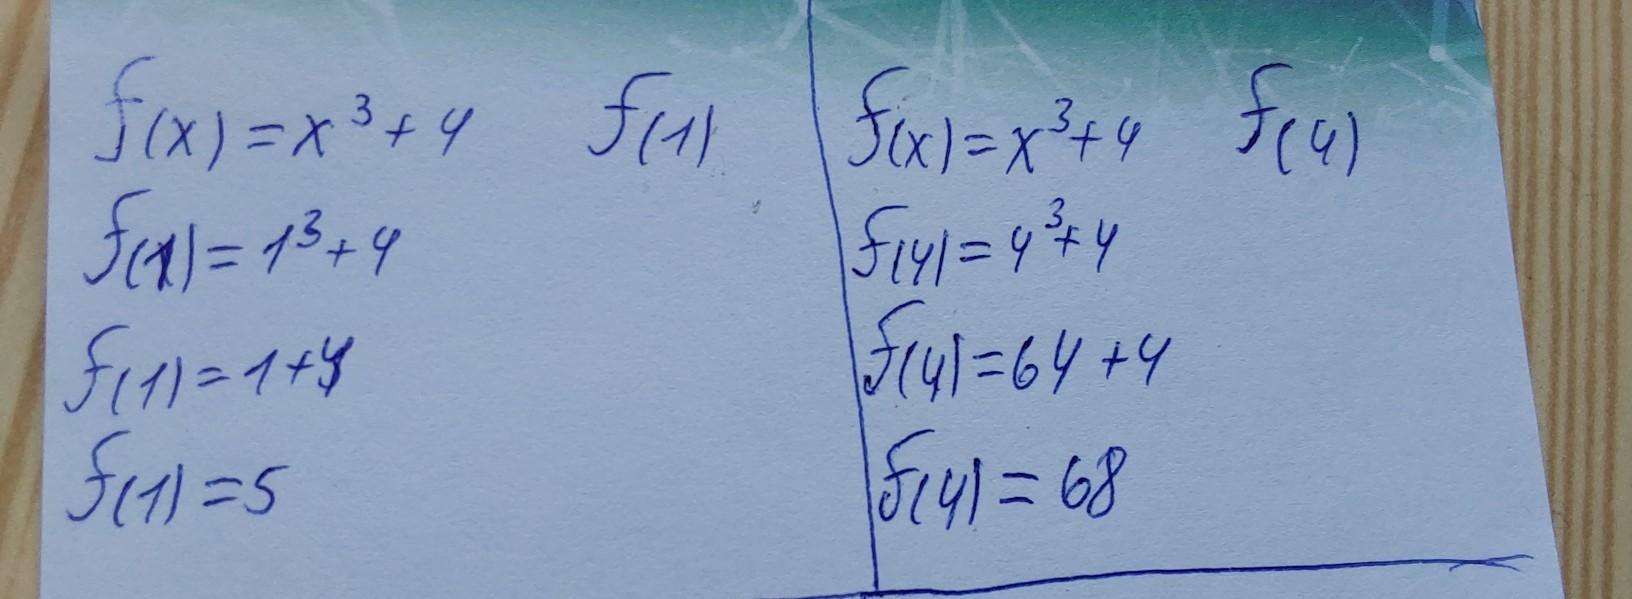 f(x) = x³ + 4 f(1)
f(1) = 1³ + 4
f(1) = 1 + 4
f(1) = 5
f(x) = x³ + 4 f(4)
f(4) = 4³ + 4
f(4) = 64 + 4
f(4) = 68